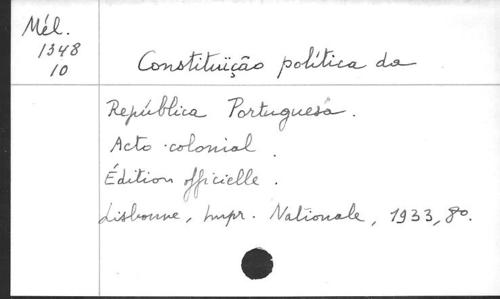 Mél.
1348
10
Constituïção política da
República Portuguesa.
Acto colonial.
Édition officielle.
Lisbonne, Impr. Nationale, 1933, 8o.